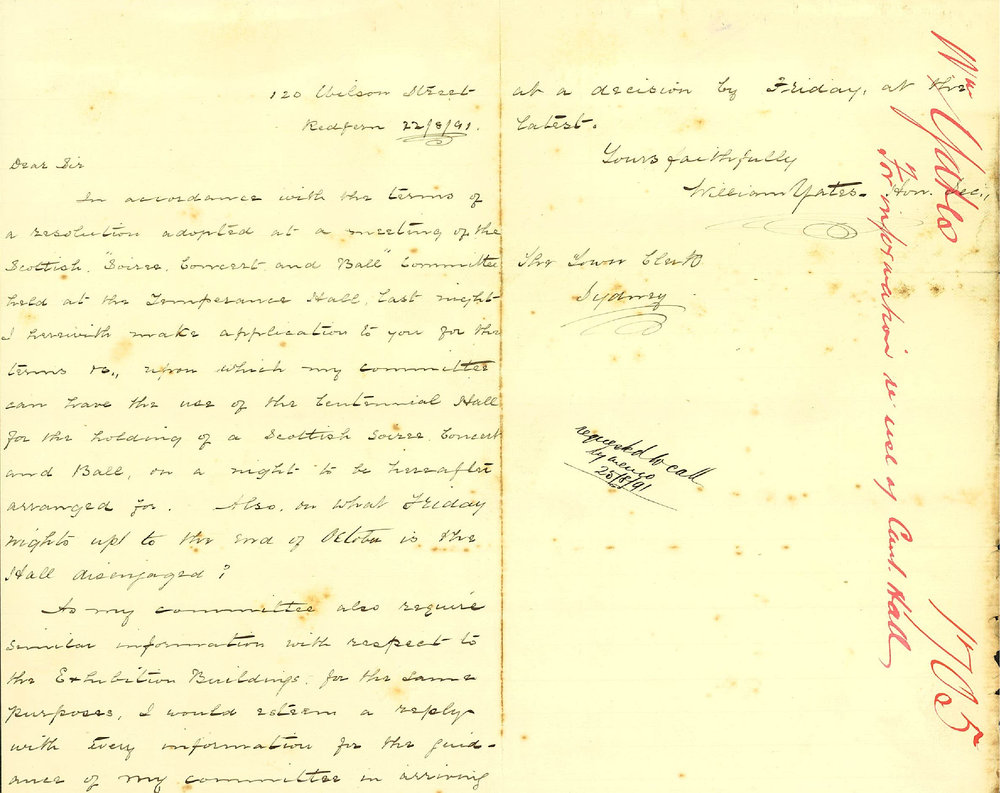 120 Wilson Street
Redfern 22/8/91.
Dear Sir
In accordance with the terms of
a resolution adopted at a meeting of the
Scottish "Soiree, Concert and Ball" Committee
held at the Temperance Hall, last night
I herewith make application to you for the
terms &c., upon which my committee
can have the use of the Centennial Hall
for the holding of a Scottish Soiree, Concert
and Ball, on a night to be hereafter
arranged for. Also, on what Friday
nights up to the end of October is the
Hall disengaged?
As my committee also require
similar information with respect to
the Exhibition Buildings, for the same
purposes, I would esteem a reply
with every information for the guid-
ance of my committee in arriving
at a decision by Friday, at the
latest.
Yours faithfully
William Yates. Hon. Sec.,
The Town Clerk
Sydney
requested to call
by memo
25/8/91
Wm Yates
For information re use of Cent. Hall
1705